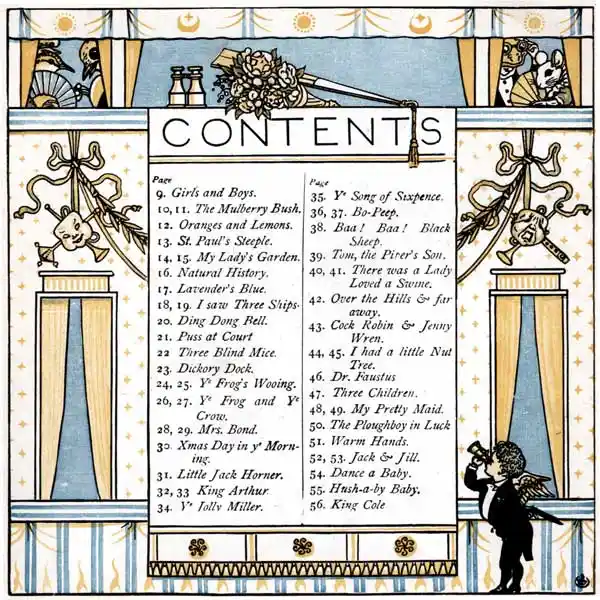 CONTENTS
Page
9. Girls and Boys.
10, 11. The Mulberry Bush.
12. Oranges and Lemons.
13. St. Paul's Steeple.
14, 15. My Lady's Garden.
16. Natural History.
17. Lavender's Blue.
18, 19. I saw Three Ships.
20. Ding Dong Bell.
21. Puss at Court
22 Three Blind Mice.
23. Dickory Dock.
24, 25. Yᵉ Frog's Wooing.
26, 27. Yᵉ Frog and Yᵉ
Crow.
28, 29. Mrs. Bond.
30. Xmas Day in yᵉ Morn-
ing.
31. Little Jack Horner.
32, 33 King Arthur
34. Yᵉ Jolly Miller.
Page
35. Yᵉ Song of Sixpence.
36, 37. Bo-Peep.
38. Baa! Baa! Black
Sheep.
39. Tom, the Piper's Son.
40, 41. There was a Lady
Loved a Swine.
42. Over the Hills & far
away.
43. Cock Robin & Jenny
Wren.
44, 45. I had a little Nut
Tree.
46. Dr. Faustus
47. Three Children.
48, 49. My Pretty Maid.
50. The Ploughboy in Luck
51. Warm Hands.
52, 53. Jack & Jill.
54. Dance a Baby.
55. Hush-a-by Baby.
56. King Cole